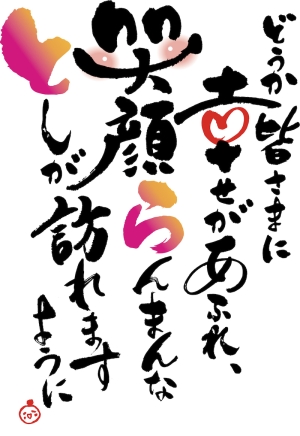 どうか皆さまに
幸せがあふれ、
笑顔らんまんな
としが訪れます
ように